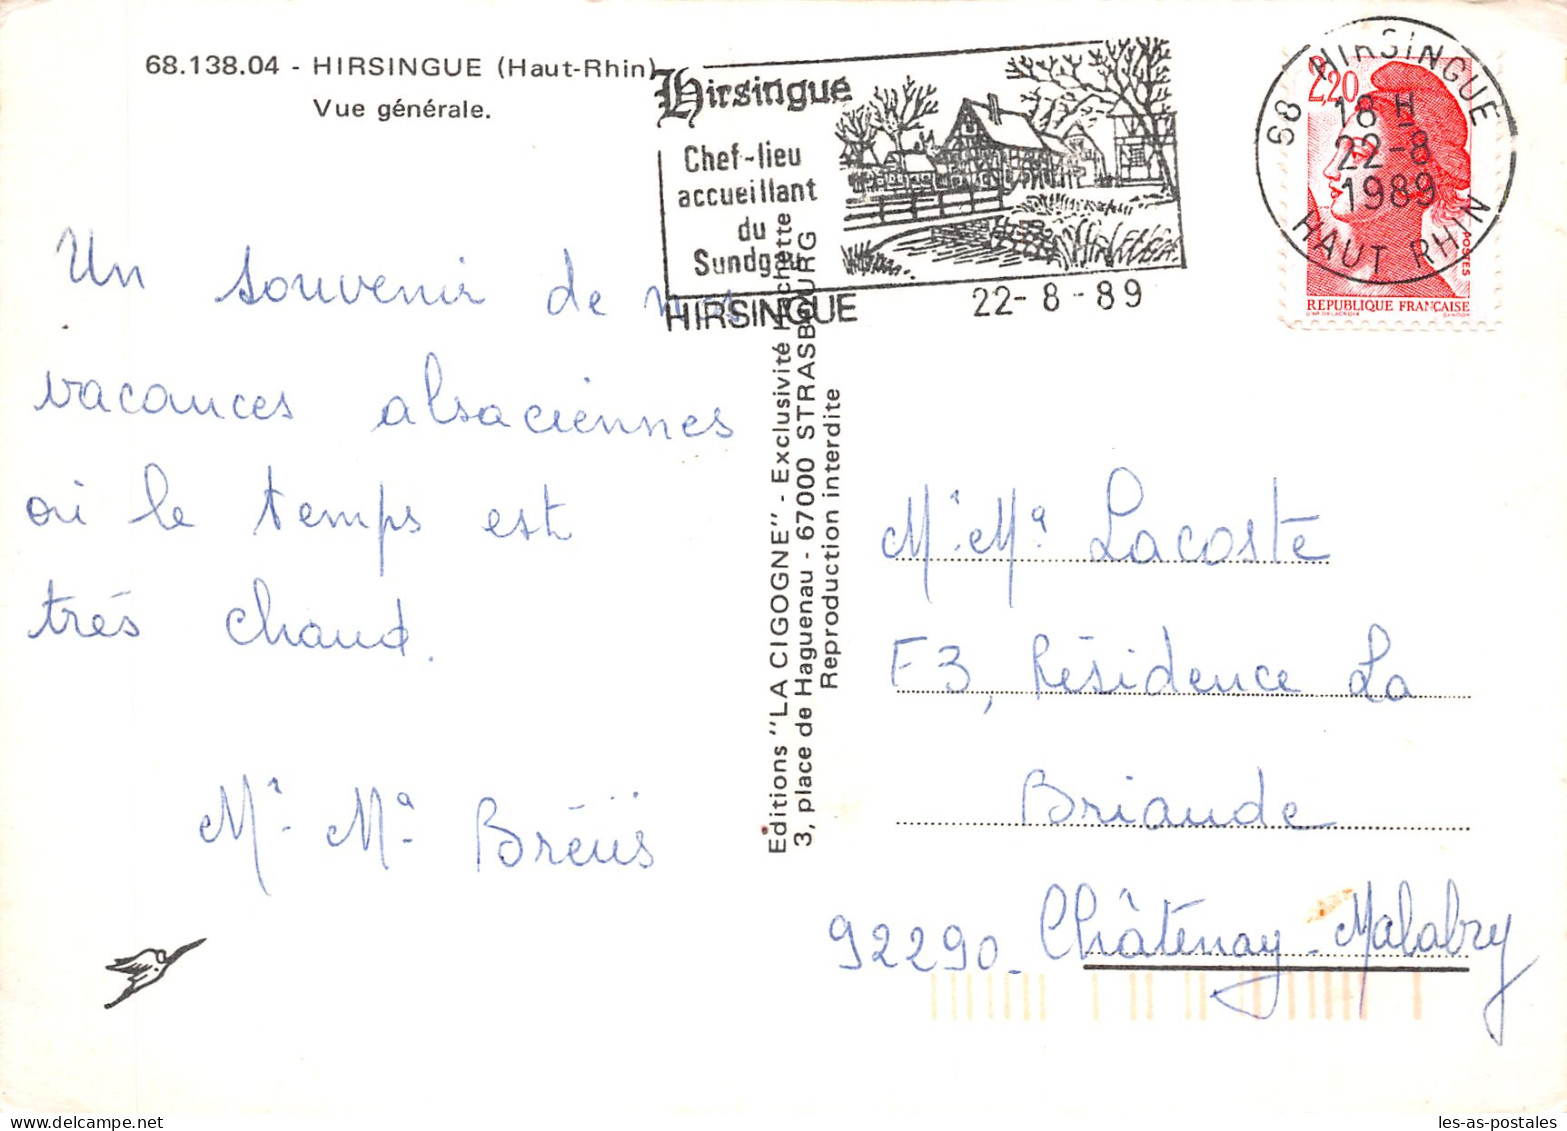 68.138.04 - HIRSINGUE (Haut-Rhin)
Vue générale.
Hirsingue
Chef-lieu
accueillant
du
Sundgau
HIRSINGUE
22-8-89
68 HIRSINGUE
18 H
22-8
1989
HAUT RHIN
2,20
POSTES
REPUBLIQUE FRANÇAISE
Un souvenir de nos
vacances alsaciennes
où le temps est
très chaud.
Mr. Ma. Bréüs
Editions "LA CIGOGNE" - Exclusivité Hachette
3, place de Haguenau - 67000 STRASBOURG
Reproduction interdite
Mr. Ma Lacoste
F3, Résidence La
Briaude
92290 - Châtenay-Malabry
les-as-postales